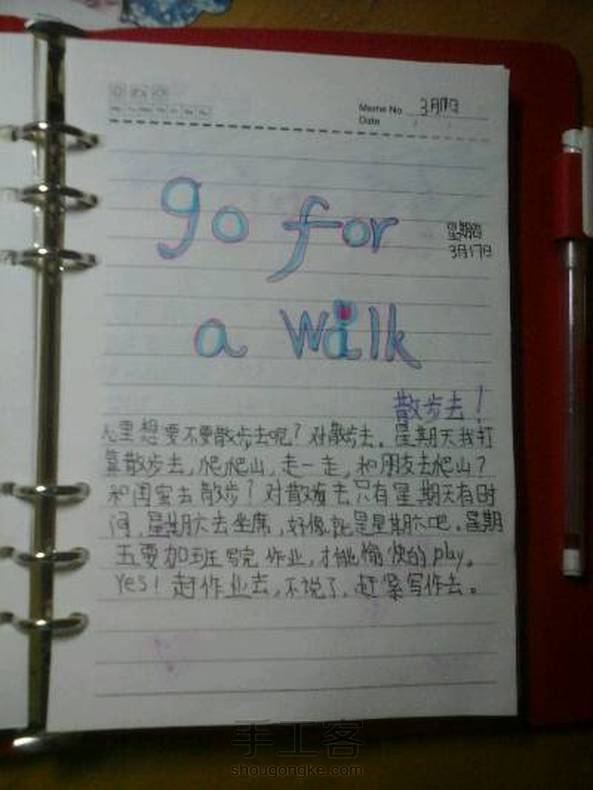 Memo No. 3月17日
Date
go for
星期四
3月17日
a walk
散步去！
心里想要不要散步去呢？对散步去。星期天我打
算散步去，爬爬山，走一走，和朋友去爬山？
和闺蜜去散步？对散步去只有星期天有时
间，星期六去坐席，好像就是星期六吧。星期
五要加班写完作业，才能愉快的play。
Yes！赶作业去，不说了，赶紧写作去。
手工客
shougongke.com